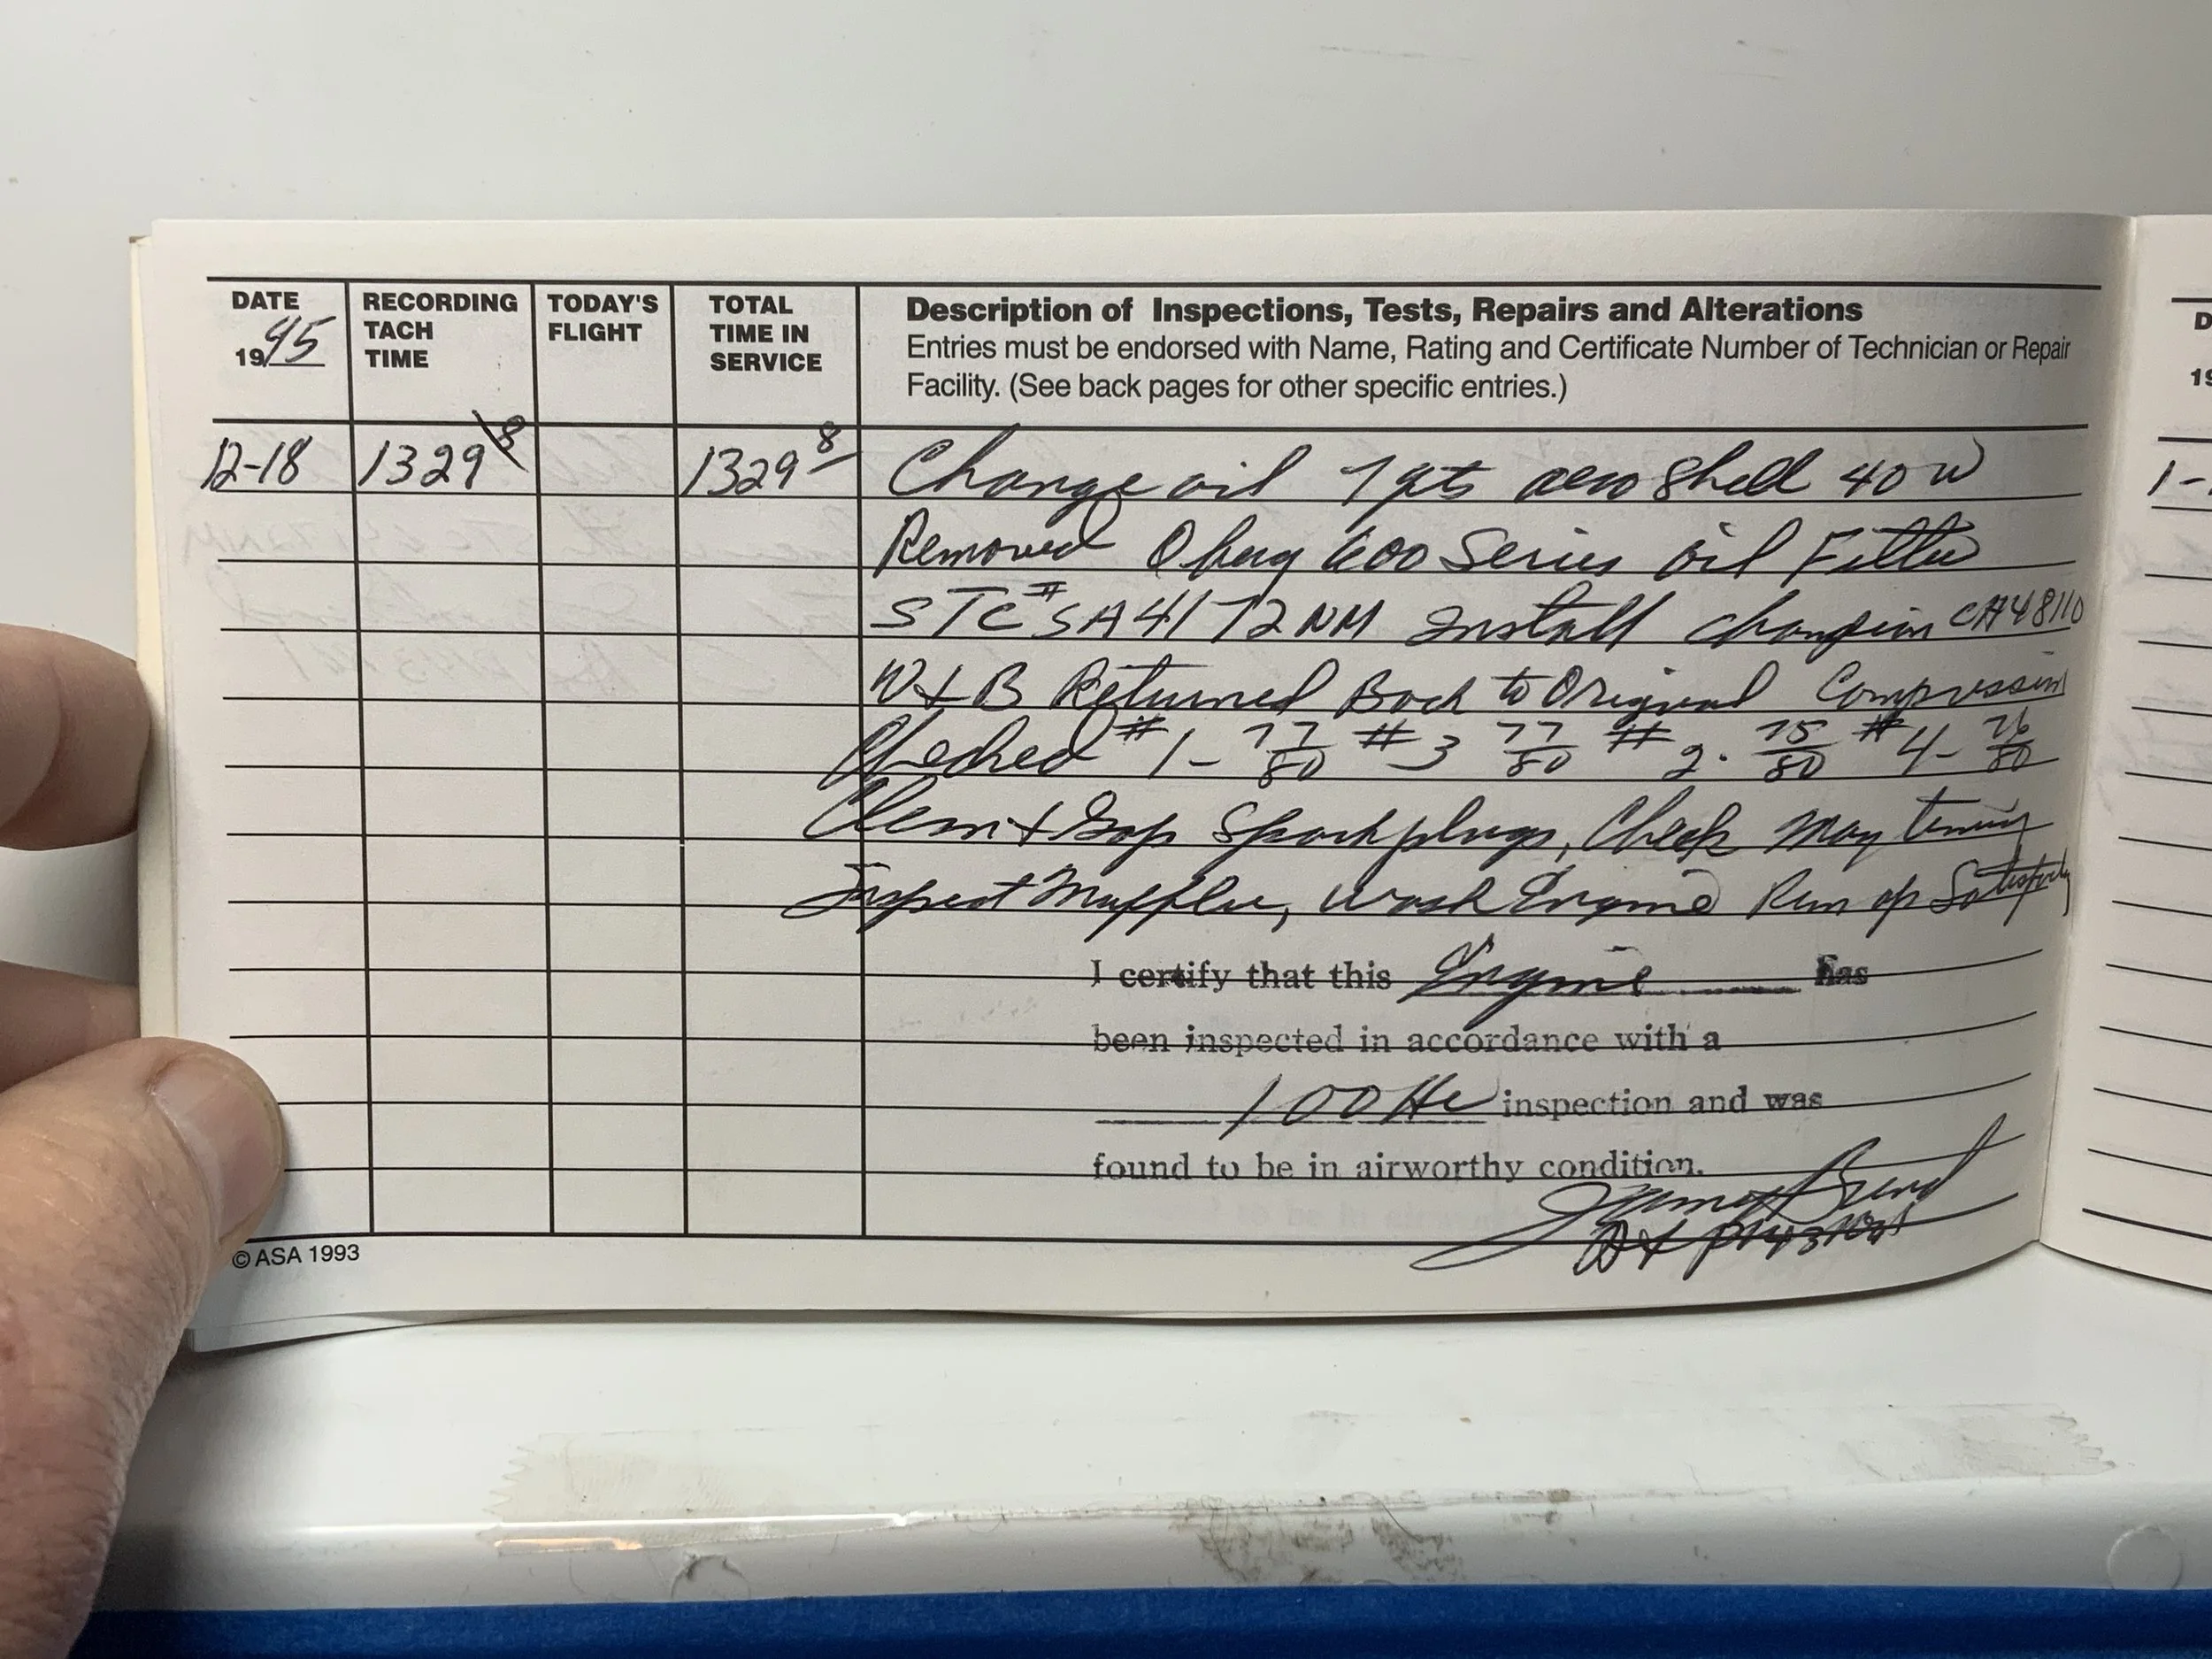 DATE
1995
RECORDING
TACH
TIME
TODAY'S
FLIGHT
TOTAL
TIME IN
SERVICE
Description of Inspections, Tests, Repairs and Alterations
Entries must be endorsed with Name, Rating and Certificate Number of Technician or Repair
Facility. (See back pages for other specific entries.)
12-18 1329 8 1329 8 Change oil 7 qts aero Shell 40 W
Removed Oberg 600 Series oil Filter
STC # SA4172NM Install Champion CH48110
W+B Returned Back to Original Compression
Checked #1- 77/80 #3 77/80 #2- 75/80 #4- 76/80
Clean + Gap Spark plugs, Check Mag timing
Inspect Muffler, Wash Engine Run up Satisfactory
I certify that this Engine has
been inspected in accordance with a
100 Hr inspection and was
found to be in airworthy condition.
James
© ASA 1993
D
19
1-